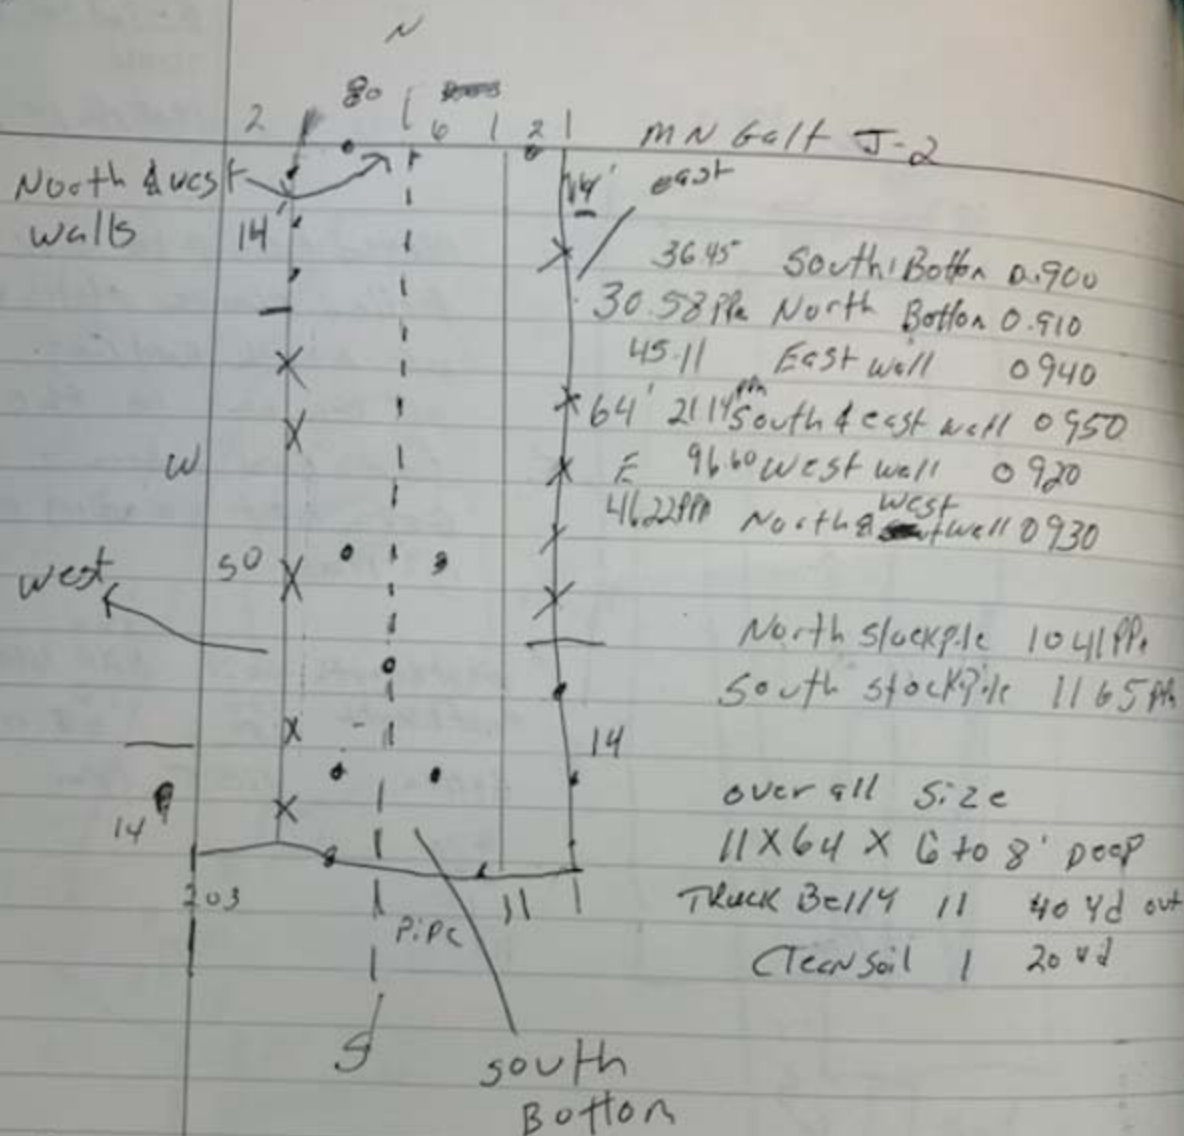 N
80
2 6 2
MN Galt J-2
North & west
walls
14'
14'
east
36.45 South Botton 0.900
30.58 PPm North Botton 0.910
45.11 East wall 0940
64' 21.14 ppm South & east wall 0950
W
E 96.60 West wall 0920
46.22 PPM North & west wall 0930
50
west
North Stockpile 1041 PPm
South StockPile 1165 PPm
14
14
over all Size
11 X 64 X 6 to 8' Deep
TRuck Belly 11 40 Yd out
Clean Soil 1 20 Yd
203
11
PiPe
S
south
Botton